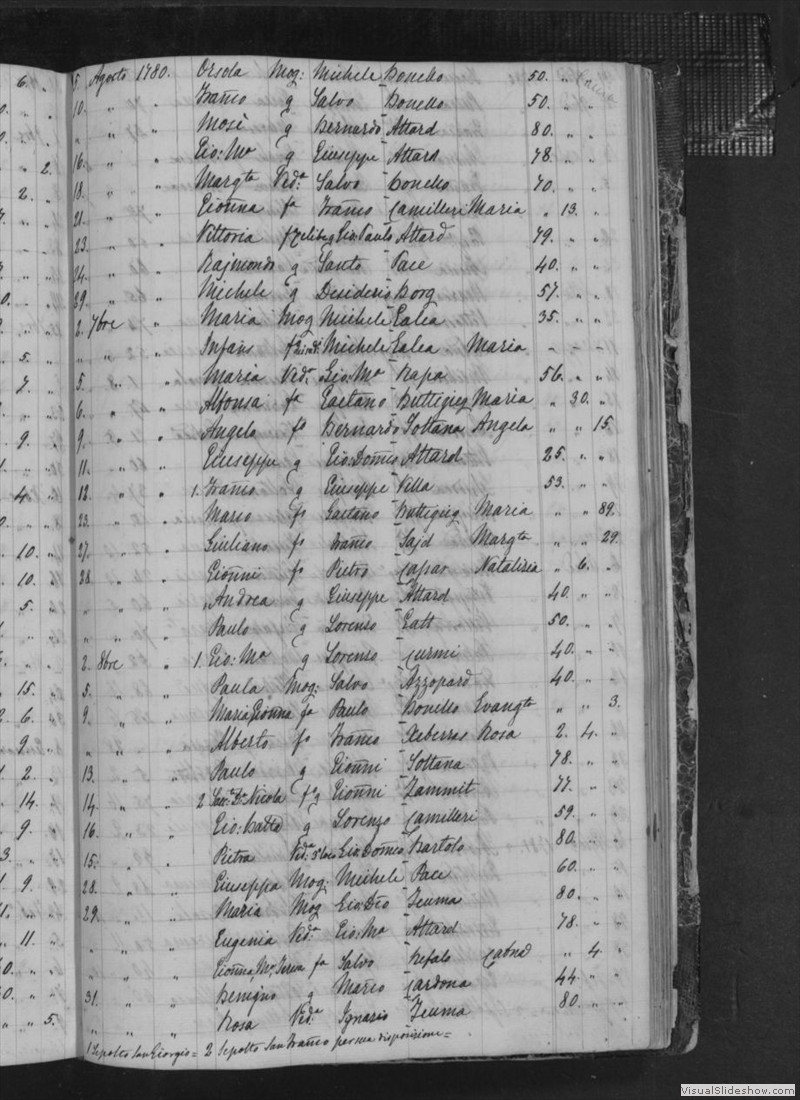 6. 5 Agosto 1780. Orsola Mog: Michele Bonello 50. " "
10. " " Franco q Salvo Bonello 50. " "
" " Mosè q Bernardo Attard 80. " "
2. 16. " " Gio: Ma q Giuseppe Attard 78. " "
2. 18. " " Margta Veda Salvo Bonello 70. " "
21. " " Gionna fa Franco Camilleri Maria " 13. "
23. " " Vittoria fa Gio Paulo Attard 79. " "
24. " " Rajmondo q Santo Pace 40. " "
29. " " Michele q Desiderio Borg 57. " "
2. 7bre " Maria Mog Michele Galea 35. " "
5. Infans Michele Galea Maria - - -
7. 5. " " Maria Veda Gio: Ma Rapa 56. " "
6. " " Alfonsa fa Gaetano Buttigieg Maria " 30. "
9. 9. " " Angelo fo Bernardo Sottana Angela " " 15
11. " " Giuseppe q Gio: Domco Attard 25. " "
4. 12. " " 1. Franco q Giuseppe Villa 53. " "
23. " " Marco fo Gaetano Buttigieg Maria " " 29.
10. 27. " " Giuliano fo Franco Sajd Margta " " 29.
10. 28. " " Gionni fo Pietro Capar Natalizia " 6. "
5. " " " Andrea q Giuseppe Attard 40. " "
" " " Paulo q Lorenzo Gatt 50. " "
2. 8bre " 1. Gio: Ma q Lorenzo Curmi 40. " "
15. 5. " " Paula Mog: Salvo Azzopard 40. " "
6. 9. " " Maria Gionna fa Paulo Bonello Evangta " " 3.
9. " " " Alberto fo Franco Xeberras Rosa 2. 4. "
2. 13. " " Paulo q Gionni Sottana 78. " "
14. 14. " " 2 Nicola q Gionni Zammit 77. " "
9. 16. " " Gio: Batta q Lorenzo Camilleri 59. " "
15. " " Pietra Veda Gio: Domco Bartolo 80. " "
9. 28. " " Giuseppa Mog. Michele Pace 60. " "
29. " " Maria Mog Gio: Zeuma 80. " "
11. " " " Eugenia Veda Gio: Ma Attard 78. " "
" " " Gionna Ma Teresa fa Salvo Refalo " 4. "
31. " " Benigno q Marco Cardona 44. " "
5. " " " Rosa Veda Ignazio Zeuma 80. " "
1 Sepolto San Giorgio = 2 Sepolto San Franco per sua disposizione =
VisualSlideshow.com